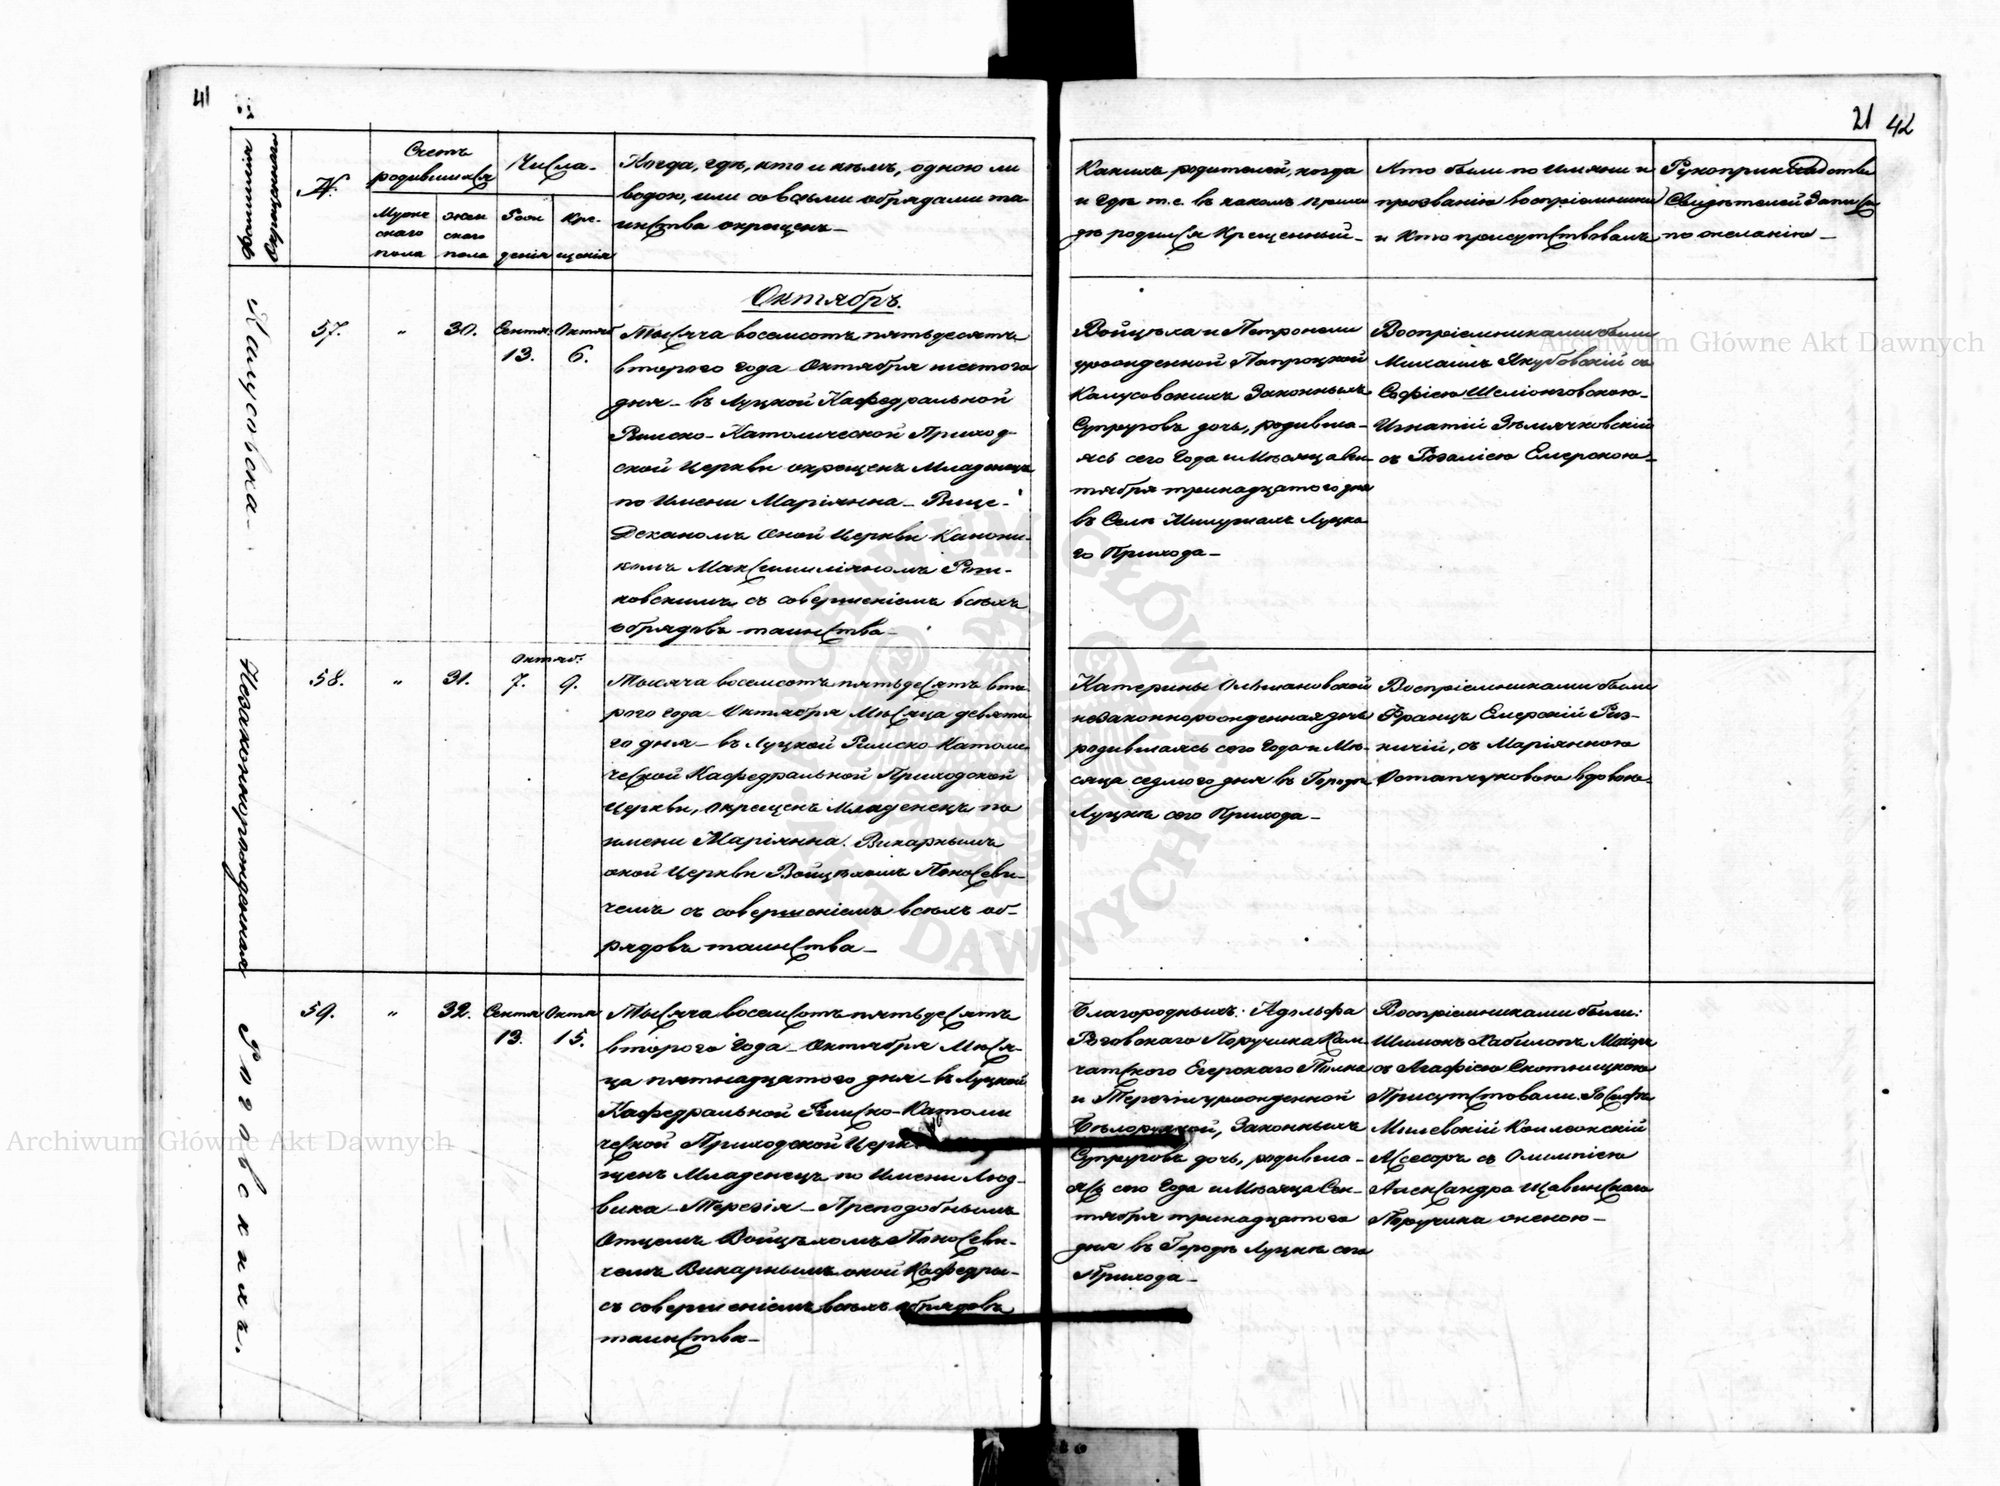 41
21 42
№
Счетъ родившихся
Числа
Мужескаго пола
Женскаго пола
Рожденія
Крещенія
Когда, гдѣ, кто и кѣмъ, одною ли
водою, или со всѣми обрядами та-
инства окрещенъ
Какихъ родителей, когда
и гдѣ т.е. въ какомъ прихо
дѣ родился Крещенный
Кто были по Имяни и
прозванію воспріемники
и Кто присутствовалъ
Свидѣтелей Записи
по желанію
Калусовска
57.
„
30.
Сентяб
13.
Октяб
6.
Октябрь.
Тысяча восемсотъ пятьдесятъ
втораго года Октября шестаго
дня въ Луцкой Кафедральной
Римско-Католической Приход-
ской Церкви окрещенъ Младенецъ
по Имени Маріянна Вице-
Деканомъ оной Церкви Канони-
комъ Максимиліяномъ
съ совершеніемъ всѣхъ
обрядовъ таинства
Войцѣха и Петронели
урожденной Папроцкой
Калусовскихъ Законныхъ
Супруговъ дочь, родивша-
ясь сего Года и Мѣсяца Сен-
тября тринадцатого дня
въ Селѣ Милушахъ Луцка
го Прихода
Воспріемниками были
Михаилъ Якубовскій съ
Софіею
Игнатій
съ Розаліею
Незаконнорожденная
58.
„
31.
Октяб:
7.
9.
Тысяча восемсотъ пятьдесятъ вто
рого года Октября Мѣсяца девята
го дня въ Луцкой Римско-Католи
ческой Кафедральной Приходской
Церкви, окрещенъ Младенецъ по
имени Маріянна. Викарнымъ
оной Церкви Войцѣхомъ
съ совершеніемъ всѣхъ об-
рядовъ таинства
Катерины Ольшановской
незаконнорожденная дочь
родившаясь сего Года и Мѣ-
сяца седмого дня въ Городѣ
Луцкѣ сего Прихода
Воспріемниками были
Францъ
съ Маріянною
Остапчуковою вдовою
Роговскихъ.
59.
„
32.
Сентя
13.
Октя
15.
Тысяча восемсотъ пятьдесятъ
второго Года Октября Мѣся-
ца пятнадцатого дня въ Луцкой
Кафедральной Римско-Католи
ческой Приходской
щенъ Младенецъ по Имени Люд-
вика Терезія Преподобнымъ
Отцемъ Войцѣхомъ
Викарнымъ оной Кафедры
съ совершеніемъ всѣхъ обрядовъ
таинства
Благородныхъ: Адольфа
Роговскаго Поручика Кам-
чатского Егерскаго Полка
и Терезіи урожденной
Законныхъ
Супруговъ дочь, родивша-
ясь сего Года и Мѣсяца Сен-
тября тринадцатого
дня въ Городѣ Луцкѣ сего
Прихода
Воспріемниками были:
Шимонъ
съ Агафіею
Присутствовали:
Милевскій
съ Олимпіею
Александра
Поручика женою
Archiwum Główne Akt Dawnych
Archiwum Główne Akt Dawnych
ARCHIWUM GŁÓWNE AKT DAWNYCH